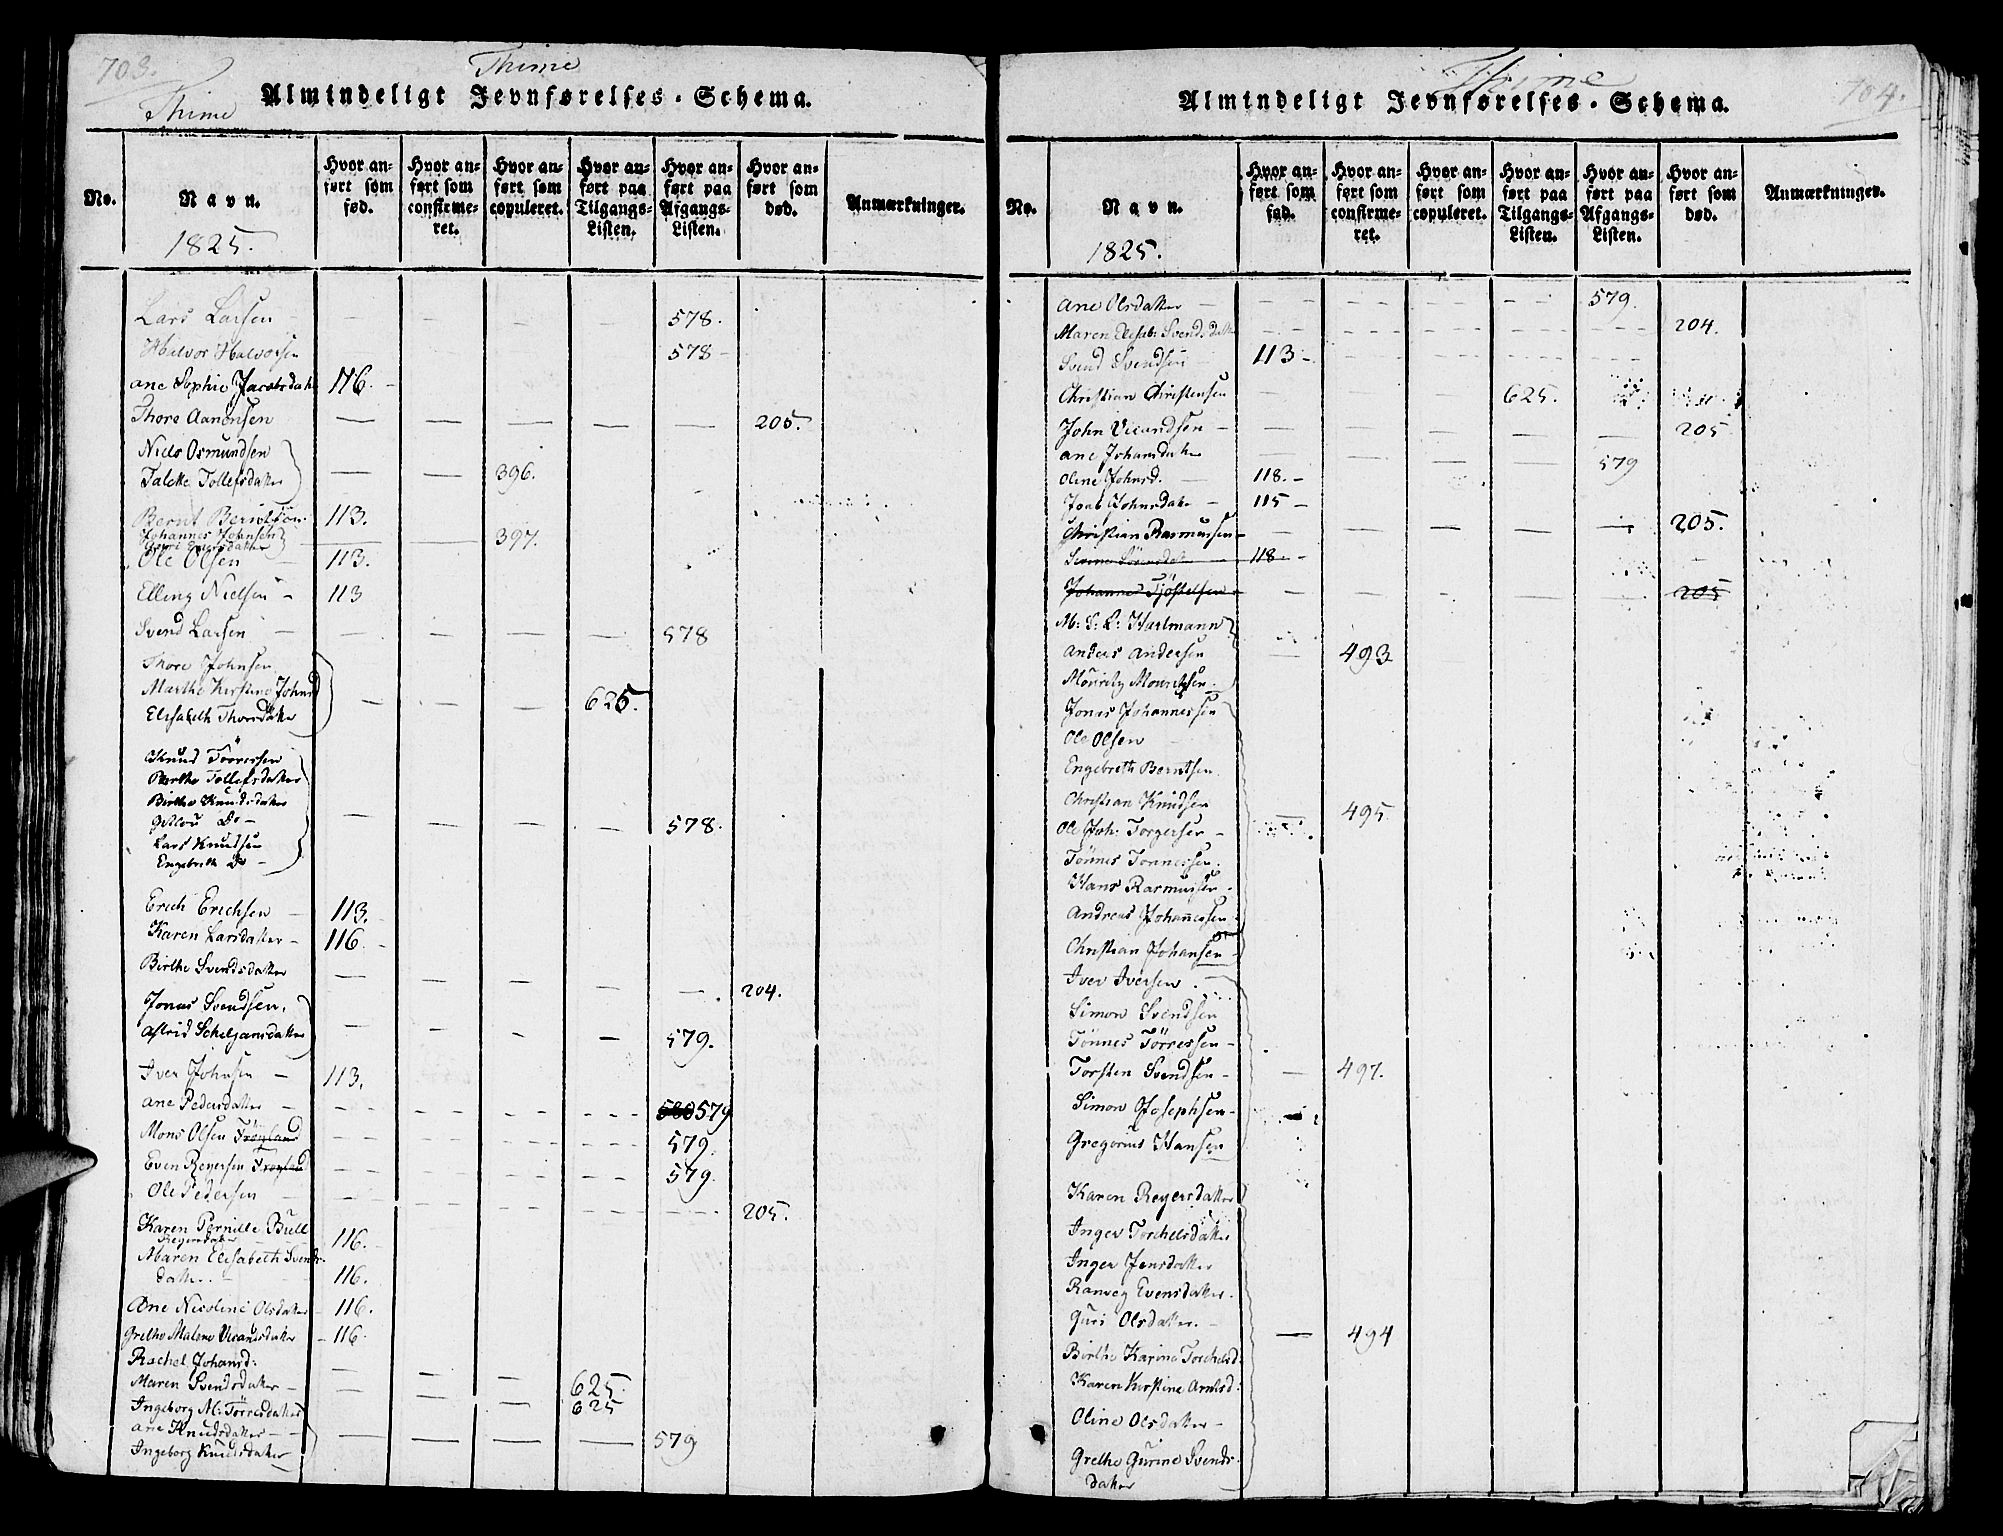 703.
Thime
Thime
Almindeligt Jevnførelses-Schema.
No.
Navn.
1825.
Hvor anført som fød.
Hvor anført som confirmeret.
Hvor anført som copuleret.
Hvor anført paa Tilgangs-Listen.
Hvor anført paa Afgangs-Listen.
Hvor anført som død.
Anmærkninger.
Lars Larsen – 578.
Halvor Halvorsen 578 –
Ane Sophie Jacobsdatt 116. –
Thore Aanensen 205.
Niels Osmundsen
Talette Tollefsdatter 396.
Bernt Berntsen 113.
Johannes Johnsen
Guri Eversdatter 397.
Ole Olsen – 113.
Elling Nielsen – 113
Svend Larsen – 578
Thore Johnsen
Marthe Kirstine Johnsd
Elisabeth Thoresdatter 625.
Knud Törresen
Berthe Tollefsdatter
Birthe Knudsdatter
Do –
Lars Knudsen
Engebreth Do – 578.
Erich Erichsen – 113.
Karen Larsdatter – 116. –
Birthe Svendsdatter 204.
Jonas Svendsen.
Astrid Scheljansdatter 579.
Iver Johnsen – 113.
Ane Pedersdatter – 580 579
Mons Olsen Fröyland 579.
Even Reyersen Fröyland 579.
Ole Pedersen 205.
Karen Pernille Bull
Reyersdatter 116. –
Maren Elisabeth Svends-
datter. – 116.
Ane Nicoline Olsdatter – 116.
Grethe Malene Vicandsdatter – 116.
Rachel Johansd:
Maren Svendsdatter – 625.
Ingeborg M: Törresdatter 625
Ane Knudsdatter –
Ingeborg Knudsdatter 579
704.
Thime
Almindeligt Jevnførelses-Schema.
No.
Navn.
1825.
Hvor anført som fød.
Hvor anført som confirmeret.
Hvor anført som copuleret.
Hvor anført paa Tilgangs-Listen.
Hvor anført paa Afgangs-Listen.
Hvor anført som død.
Anmærkninger.
Ane Olsdatter – 579.
Maren Elisab: Svends Datter 204.
Svend Svendsen 113 –
Christian Christensen 625.
John Vicandsen – 205
Ane Johansdatter 579
Oline Johnsd. 118. –
Johnsdatter – 115 –
Christian Rasmussen – 205.
Sörensdatter 118. –
Johannes Tjöstelsen 205
M: S: L: Hartmann
Anders Andersen 493
Mouritz Mouritzsen.
Jonas Johannessen
Ole Olsen
Engebreth Berntsen.
Christian Knudsen 495
Ole Joh: Torgersen –
Tönnes Tönnessen.
Hans Rasmussen.
Andreas Johannessen
Christian Johansen –
Iver Iversen.
Simon Svendsen
Tönnes Törresen –
Torsten Svendsen – 497.
Simon Josephsen –
Gregorius Hansen
Karen Reyersdatter
Inger Torchelsdatter
Inger Jensdatter
Ranveg Evensdatter.
Guri Olsdatter. – 494
Birthe Karine Torchelsd:
Karen Kirstine Arntsd:
Oline Olsdatter –
Grethe Gurine Svends-
datter